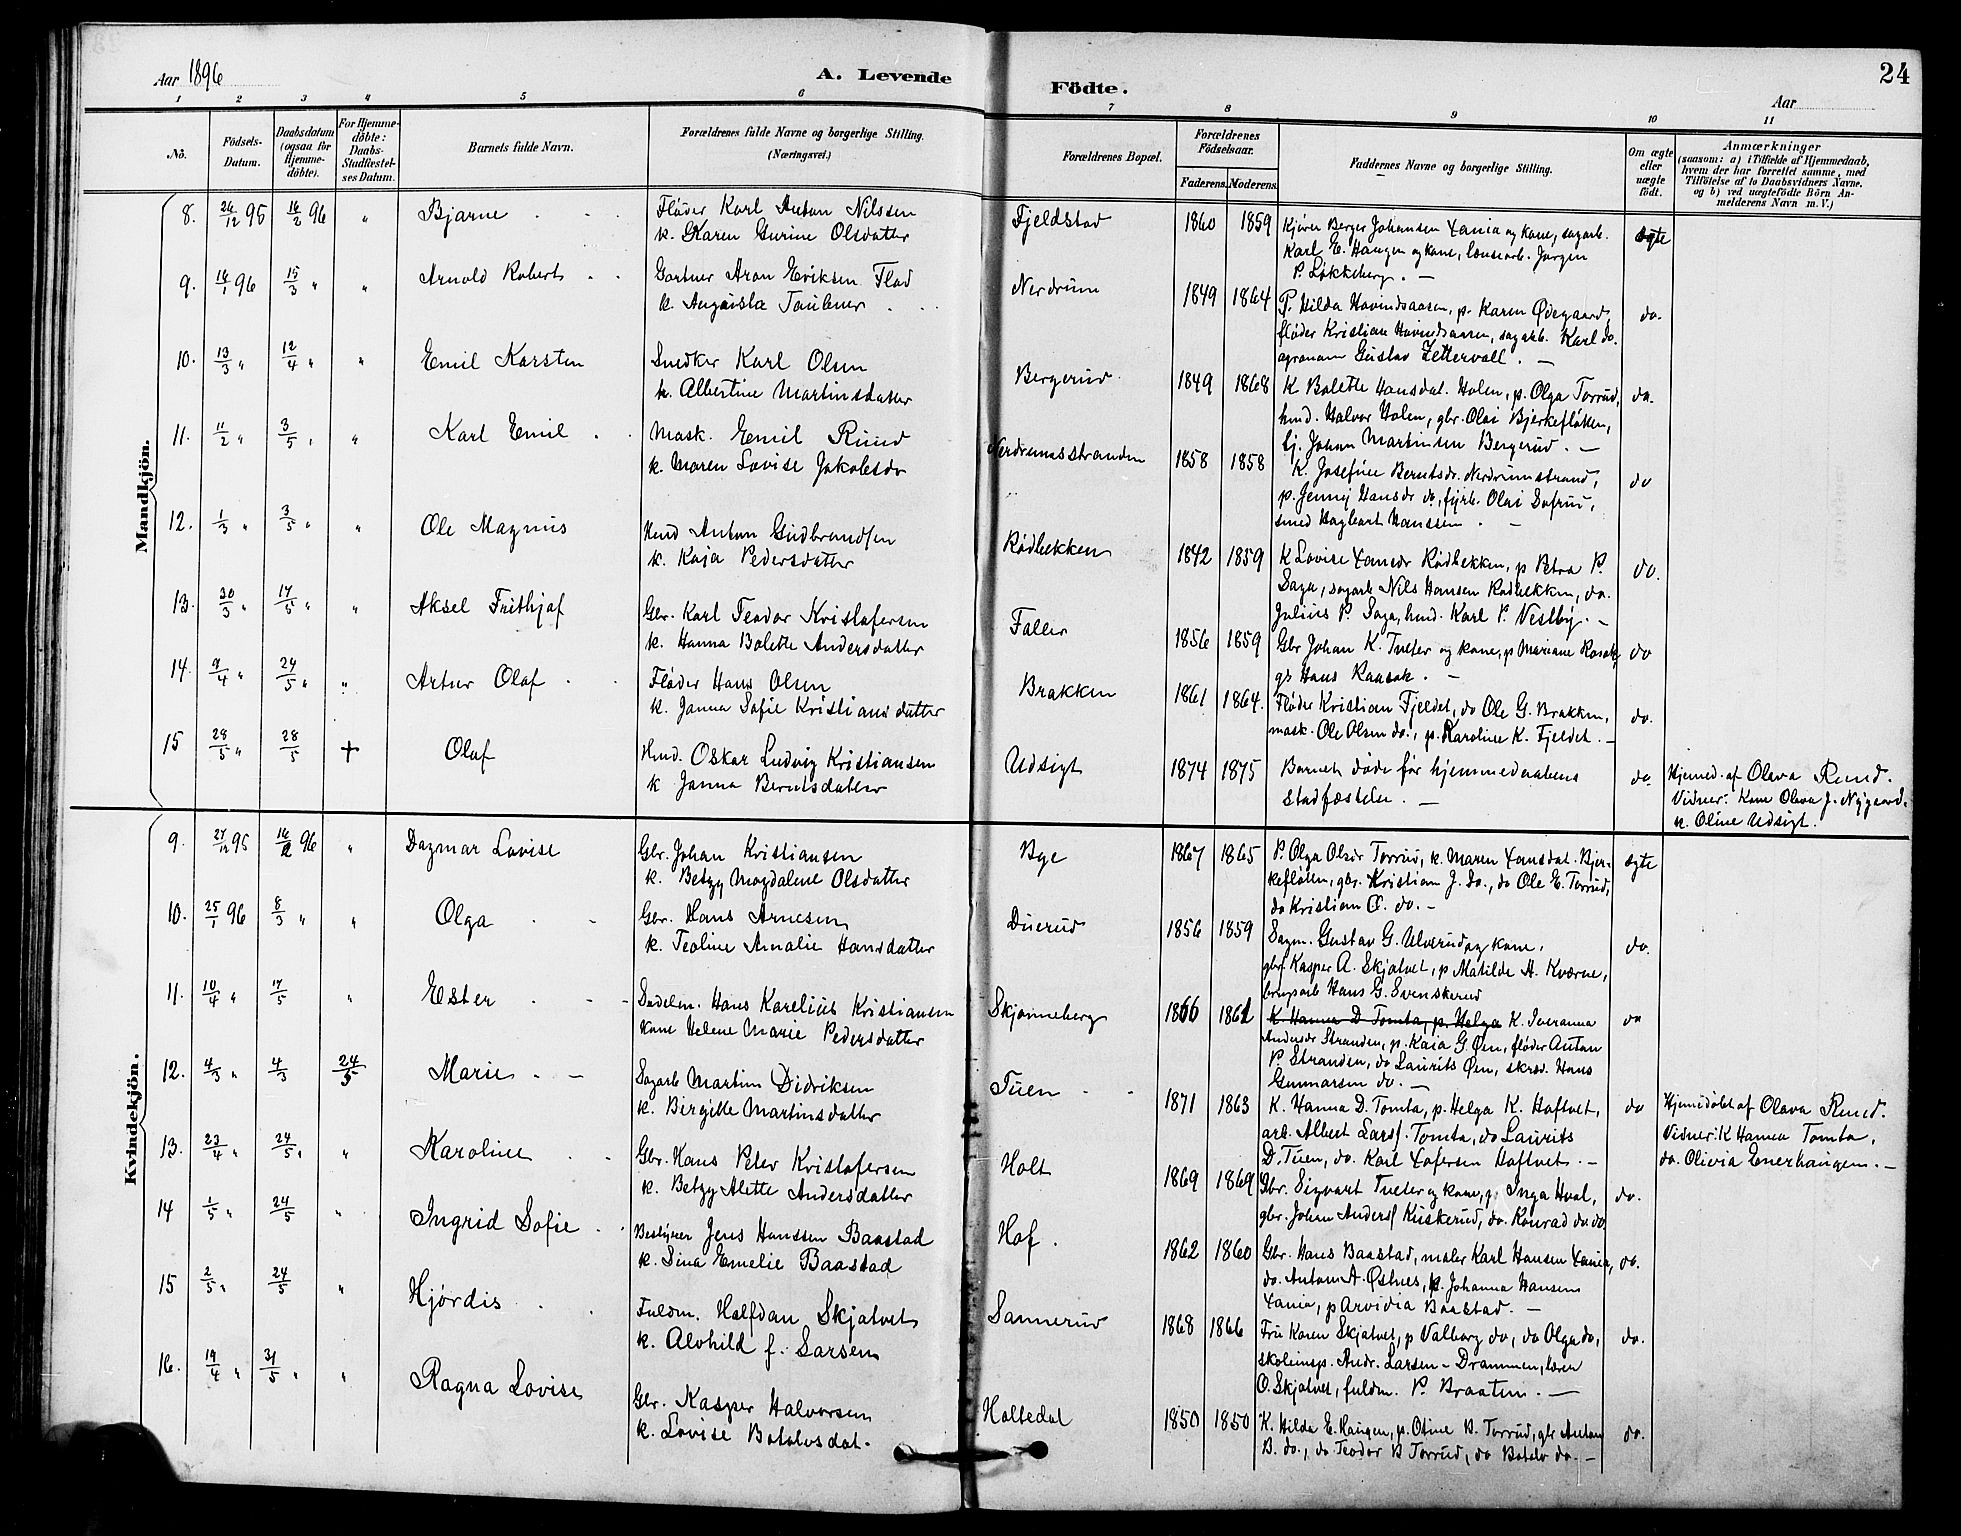 24
Aar 1896
A. Levende
Födte.
Aar
1 2 3 4 5 6 7 8 9 10 11
No.
Födsels-Datum.
Daabsdatum (ogsaa for Hjemme-döbte).
For Hjemme-döbte: Daabs-Stadfæstel-ses Datum.
Barnets fulde Navn.
Forældrenes fulde Navne og borgerlige Stilling.
(Næringsvei.)
Forældrenes Bopæl.
Forældrenes Födselsaar.
Faderens. Moderens.
Faddernes Navne og borgerlige Stilling.
Om ægte eller uægte födt.
Anmærkninger
(saasom: a) i Tilfælde af Hjemmedaab,
hvem der har forrettet samme, med
Tilföielse af to Daabsvidners Navne.
og b) ved uægtefödte Börn An-
melderens Navn m. V.)
Mandkjön.
8. 26/12 95 16/2 96 " Bjarne Fløder Karl Anton Nilssen Fjeldstad 1860 1859 Kjører Berger Johansen Lania og kone, sagarb. ægte
k. Karen Gurine Olsdatter Karl E. Haugen og kone, lænsearb. Jørgen
P. Løkkeberg. —
9. 16/1 96 15/3 " " Arnold Robert Gartner Aron Eriksen Flad Nerdrum 1849 1864 P. Hilda Hovindsaasen, p. Karen Ødegaard, do.
k. Augusta Taulener fløder Kristian Hovindsaasen, sagarb. Karl do.
agronom Gustav Zettervall. —
10. 13/3 " 12/4 " " Emil Karsten Snedker Karl Olsen Bergerud 1849 1868 K Bolette Hansdat. Holen, p. Olga Torrud, do.
k. Albertine Martinsdatter hmd. Halvor Holen, gbr. Olai Bjerkefløten,
tj. Johan Martinsen Bergerud. —
11. 11/2 " 3/5 " " Karl Emil Mask. Emil Rund Nerdrumsstranden 1858 1858 K. Josefine Berntsdr. Nerdrumstrand, do
k. Maren Lovise Jakobsdr p. Jenny Hansdr do, fyrb. Olai Dofrud,
smed Hagbart Hanssen. —
12. 1/3 " 3/5 " " Ole Magnus Hmd Anton Gudbrandsen Rødbekken 1842 1859 K Lovise Larsdr Rødbekken, p Petra P. do.
k. Kaja Pedersdatter Saga, sagarb Nils Hansen Rødbekken, do.
Julius P. Saga, hmd. Karl P. Vestby. —
13. 30/3 " 17/5 " " Aksel Frithjof Gbr. Karl Teodor Kristofersen Faller 1856 1859 Gbr Johan K. Tveter og kone, p Mariane Raasok, do
k. Hanna Bolette Andersdatter gs Hans Raasok. —
14. 9/4 " 24/5 " " Artur Olaf Fløder Hans Olsen Brakken 1861 1864. Fløder Kristian Fjeldet, do Ole G. Brakken, do.
k. Janna Sofie Kristiansdatter mask. Ole Olsen do., p. Karoline K. Fjeldet. —
15 28/5 " 28/5 + Olaf Hmd. Oskar Ludvig Kristiansen Udsigt 1874 1875 Barnet døde før hjemmedaabens do. Hjemmed. af Olava Rund.
k Janna Berntsdatter stadfæstelse. — Vidner: Kone Olava J. Nygaard.
k. Oline Udsigt.
Kvindekjön.
9. 27/12 95 16/2 96 " Dagmar Lovise Gbr. Johan Kristiansen Bye 1867 1865 P. Olga Olsdr Torrud, k. Maren Larsdat. Bjer- ægte
k. Betzy Magdalene Olsdatter kefløten, gbr. Kristian J. do., do Ole E. Torrud,
do Kristian O. do. —
10. 25/1 96 8/3 " " Olga Gbr. Hans Arnesen Duerud 1856 1859 Sagm. Gustav G. Ulverud og kone, do.
k. Teoline Amalie Hansdatter gbr. Kasper A. Skjatvet, p Matilde H. Kværne,
brugsarb Hans G. Svenskerud
11. 10/4 " 17/5 " Ester Sadelm. Hans Karelius Kristiansen Skjønneberg 1866 1862 K. Hanna D. Tomta, p. Helga K. Iveranna do
kone Helene Marie Pedersdatter Andersdr Stranden, p. Kaia G. Øen, fløder Anton
P Stranden, do Laurits Øen, skræd. Hans
Gunnarsen do. —
12. 4/3 " 4/3 24/5 Marie Sagarb Martin Didriksen Tuen 1871 1863 K. Hanna D. Tomta, p. Helga K. Haftvet, do Hjemmedøbt af Olava Rund.
k. Birgitte Martinsdatter arb. Albert Larss. Tomta, do Laurits Vidner: K Hanna Tomta,
D. Tuen, do. Karl Lafersen Haftvet. — do. Olivia Enerhaugen. —
13. 23/4 " 24/5 " " Karoline Gbr. Hans Peter Kristofersen Holt 1869 1869 Gbr. Sigvart Tveter og kone, p. Inga Hval, do.
k. Betzy Alette Andersdatter gbr. Johan Anders Kuskerud, do. Konrad do do.
14 1/5 " 24/5 " Ingrid Sofie Bestyrer Jens Hanssen Baastad Hof. 1862 1860 Gbr. Hans Baastad, maler Karl Hansen Lania, do.
k. Sina Emelie Baastad do. Anton A. Østnes, k. Johanna Hansen
Lania, p Arvidia Baastad. —
15 2/5 " 24/5 " Hjørdis Fuldm. Halfdan Skjatvet Sannerud 1868 1866 Fru Karen Skjatvet, p Valborg do, do Olga do, do.
k. Alvhild f. Larsen skoleinsp. Andr. Larsen - Drammen, lærer
O. Skjatvet, fuldm. P. Braaten. —
16. 19/4 " 31/5 " " Ragna Lovise Gbr. Kasper Halvorsen Holtedal 1850 1850 K. Hilda E. Haugen, p. Otine B. Torrud, gbr Anton do.
k. Lovise Botolvsdat. B. do., do Teodor B Torrud, do Botolv do. —